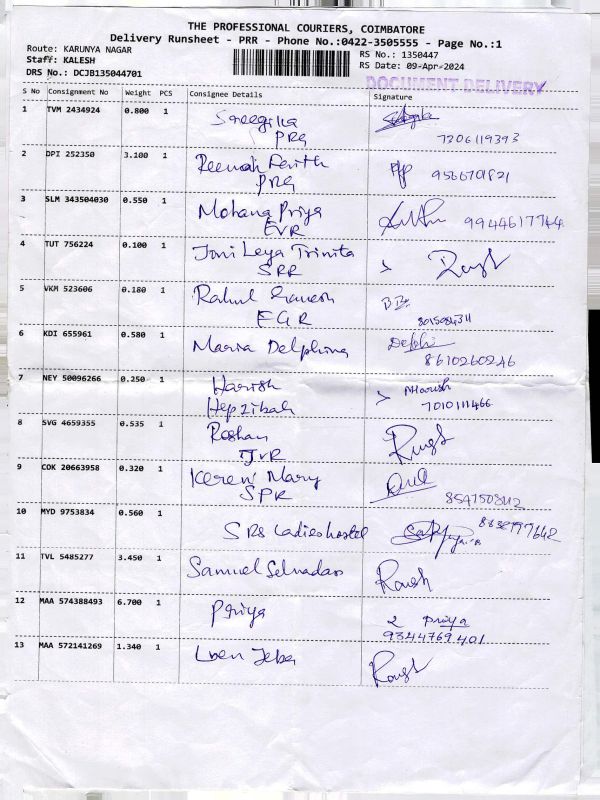 THE PROFESSIONAL COURIERS, COIMBATORE
Delivery Runsheet - PRR - Phone No.:0422-3505555 - Page No.:1
Route: KARUNYA NAGAR
Staff: KALESH
DRS No.: DCJB135044701
RS No.: 1350447
RS Date: 09-Apr-2024
DOCUMENT DELIVERY
S No Consignment No Weight PCS Consignee Details Signature
1 TVM 2434924 0.800 1 Sreegika
PRG 7306119393
2 DPI 252350 3.100 1
PRG 9566701821
3 SLM 343504030 0.550 1 Mohana Priya
EVR 9944617744
4 TUT 756224 0.100 1 Joni Leya Trinita
SRR
5 VKM 523606 0.180 1 Rahul Ganesh
EGR
6 KDI 655961 0.580 1 Maria Delphina Delphi
8610260246
7 NEY 50096266 0.250 1 Harish Harish
Hepzibah 7010111466
8 SVG 4659355 0.535 1 Roshan
TJVR
9 COK 20663958 0.320 1 Keren Mary
SPR
10 MYD 9753834 0.560 1 SRS Ladies hostel
11 TVL 5485277 3.450 1 Samuel Selvadas
12 MAA 574388493 6.700 1 Priya Priya
9344769401
13 MAA 572141269 1.340 1 Jeba